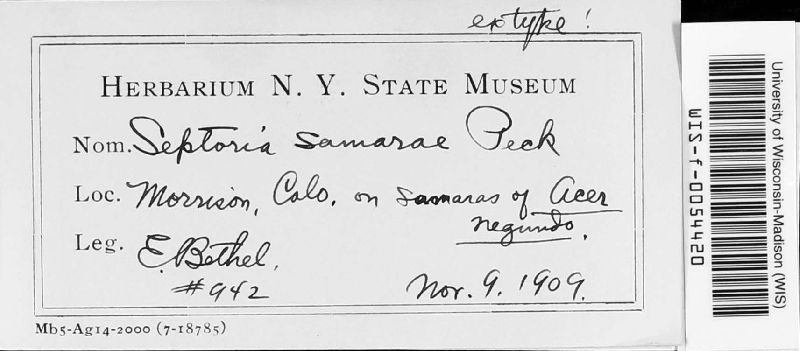 ex type!
HERBARIUM N. Y. STATE MUSEUM
Nom. Septoria samarae Peck
Loc. Morrison, Colo. on samaras of Acer
negundo.
Leg. E. Bethel.
#942
Nov. 9. 1909.
Mb5-Ag14-2000 (7-18785)
University of Wisconsin-Madison (WIS)
WIS-f-0054420